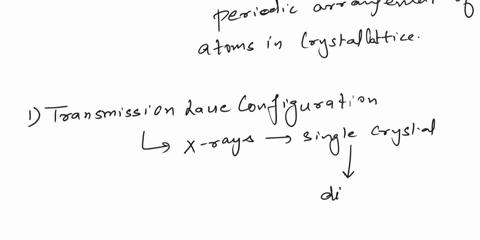 periodic arrangement of
atoms in Crystal lattice.
1) Transmission Laue Configuration
↳ X-rays → single crystal
↓
di